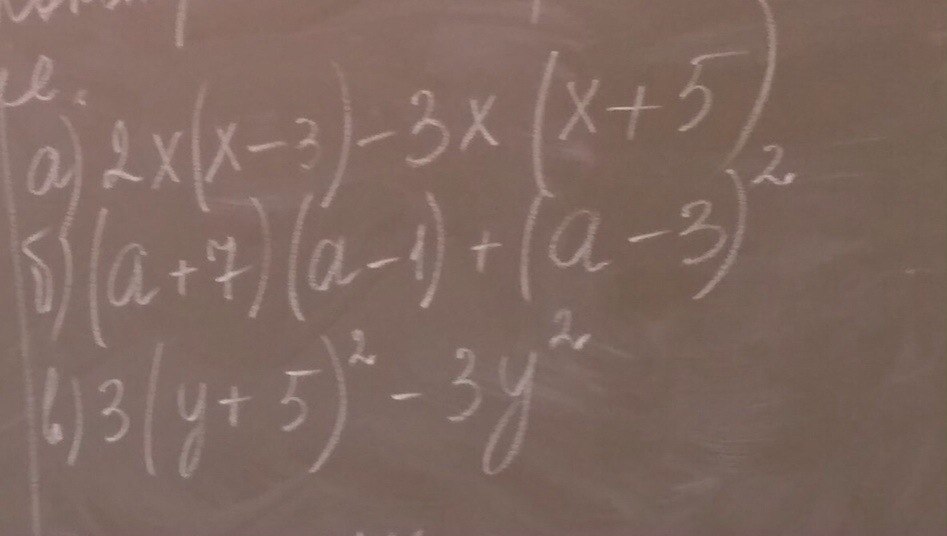 а) 2x(x-3)-3x(x+5)
б) (a+7)(a-1)+(a-3)²
в) 3(y+5)²-3y²